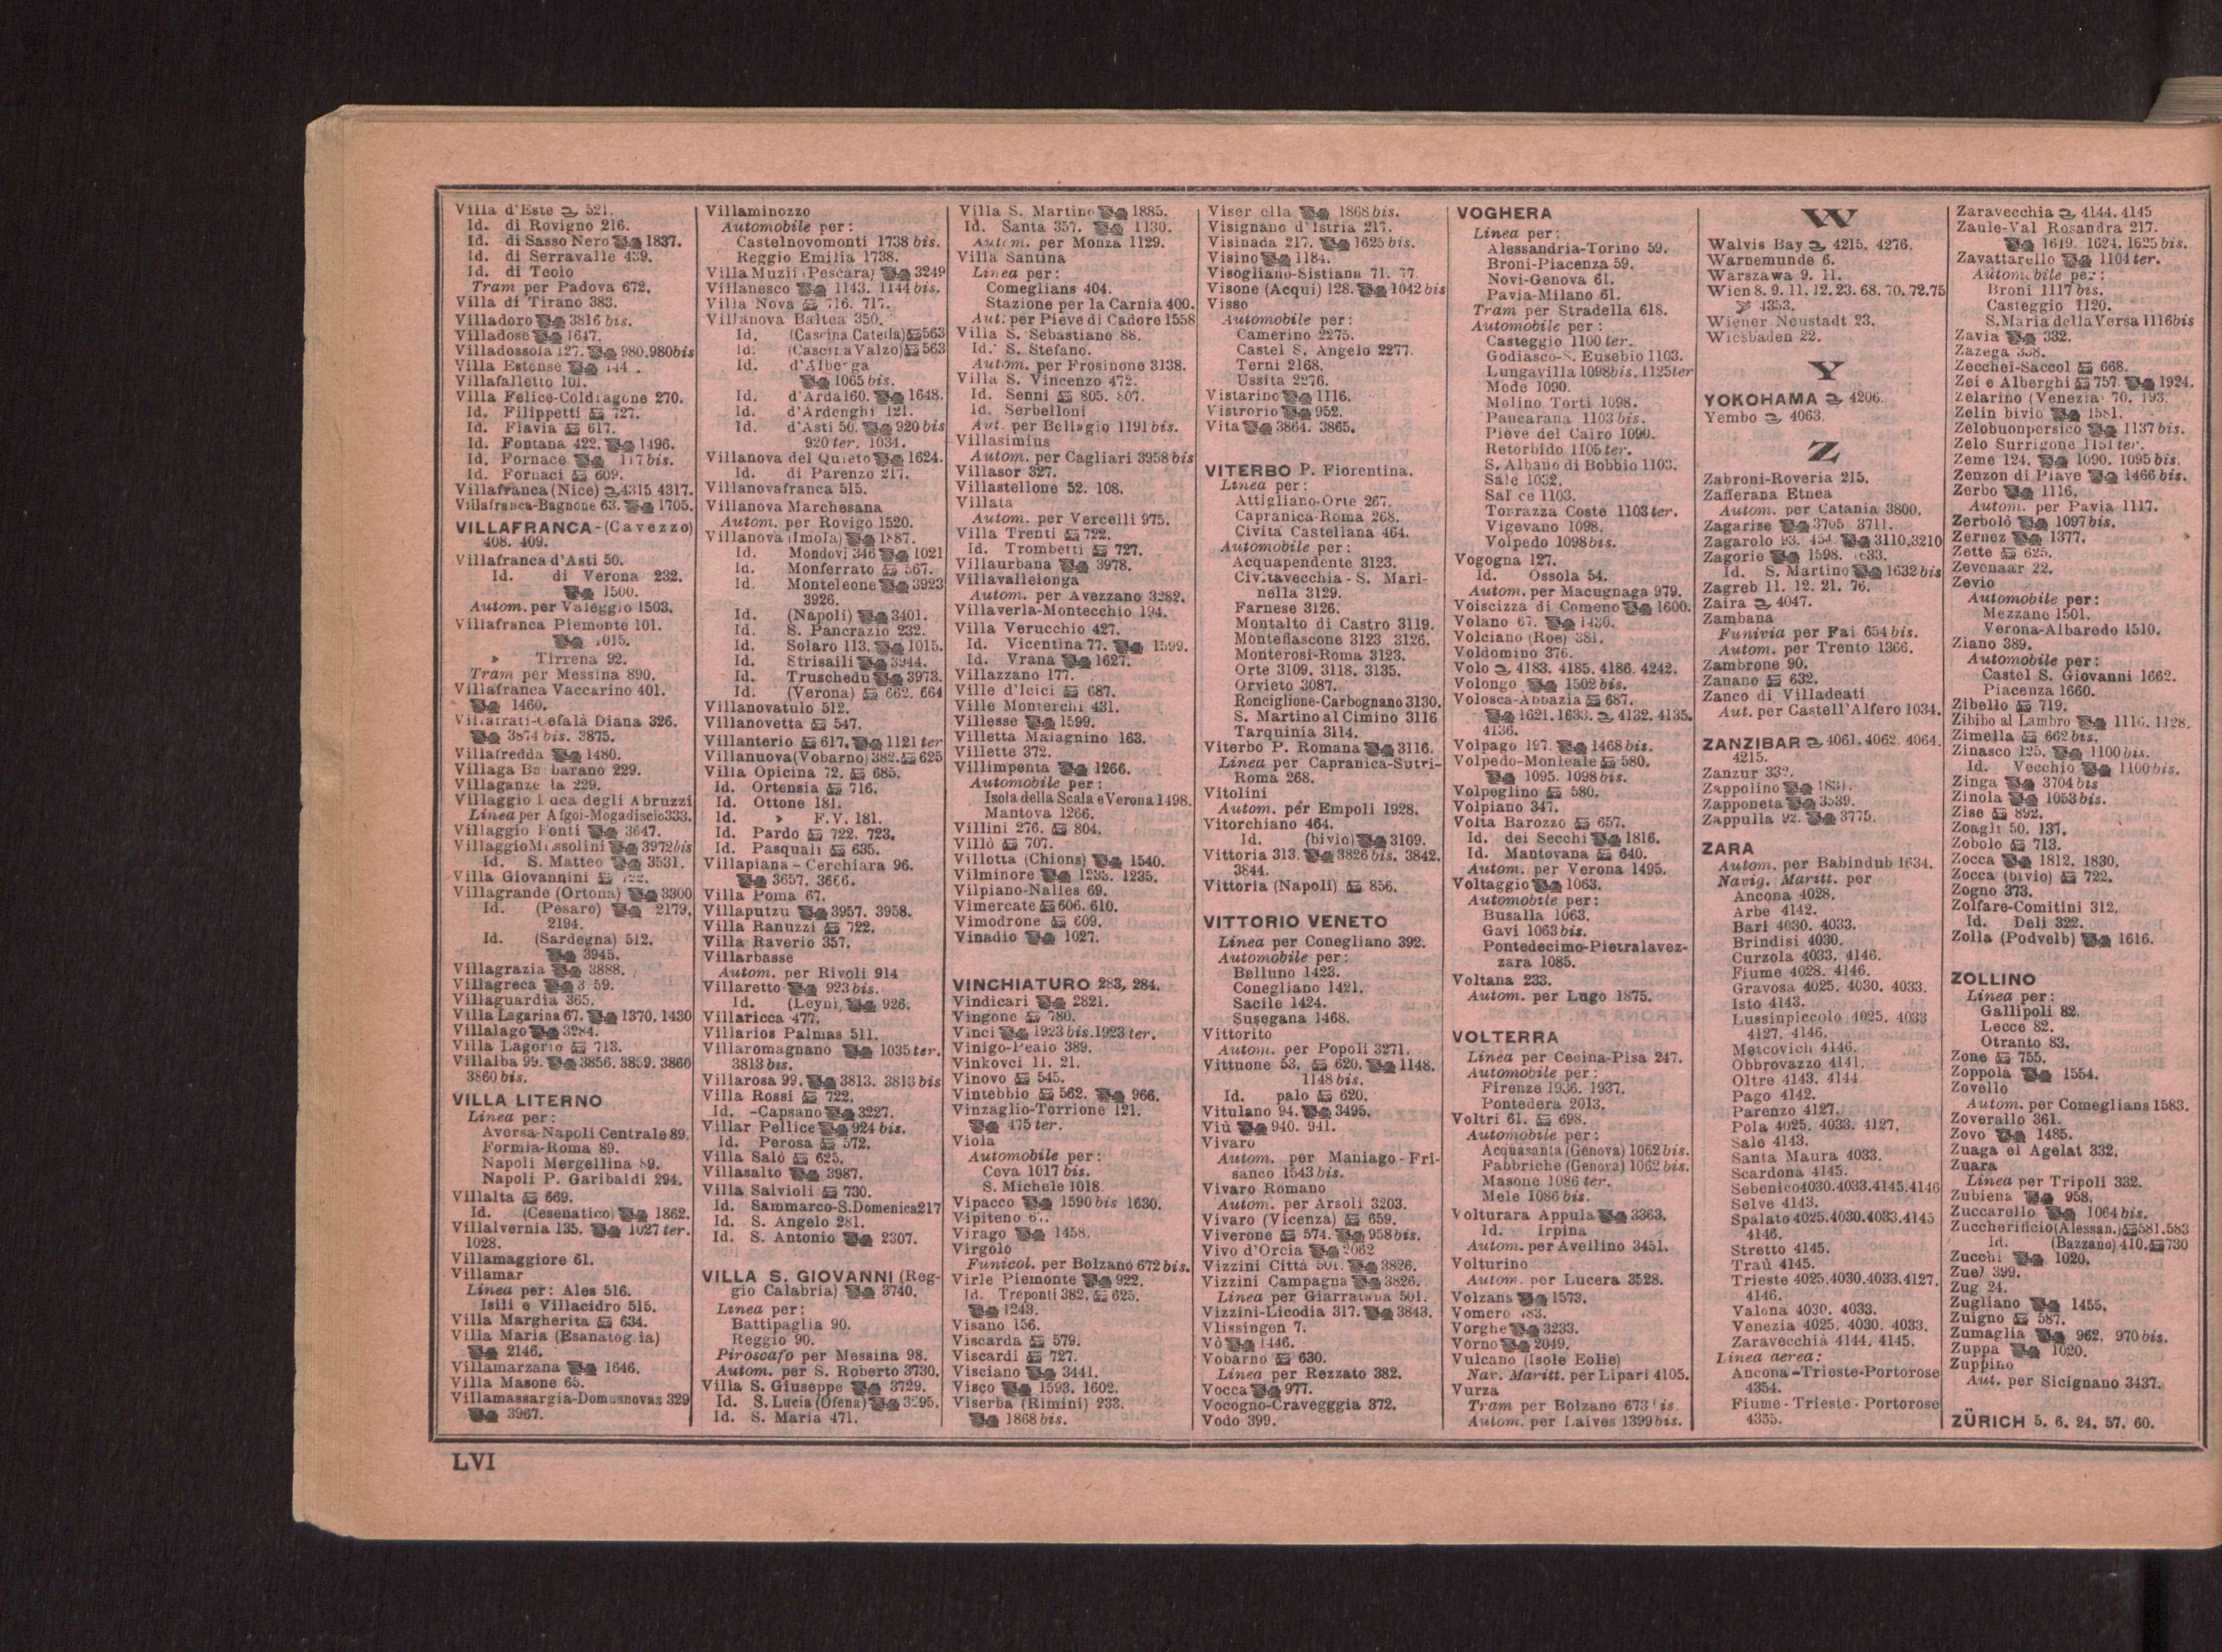 Villa d'Este 521.
Id. di Rovigno 216.
Id. di Sasso Nero 1837.
Id. di Serravalle 439.
Id. di Teolo
Tram per Padova 672.
Villa di Tirano 383.
Villadoro 3816 bis.
Villadose 1647.
Villadossola 127. 980.980bis
Villa Estense
Villafalletto 101.
Villa Felice-Coldragone 270.
Id. Filippetti 727.
Id. Flavia 617.
Id. Fontana 422. 1496.
Id. Fornace 117bis.
Id. Fornaci 609.
Villafranca (Nice) 4315 4317.
Villafranca-Bagnone 63. 1705.
VILLAFRANCA-(Cavezzo)
408. 409.
Villafranca d'Asti 50.
Id. di Verona 232.
1500.
Autom. per Valeggio 1503.
Villafranca Piemonte 101.
1015.
» Tirrena 92.
Tram per Messina 890.
Villafranca Vaccarino 401.
1460.
Villafrati-Cefalà Diana 326.
3874 bis. 3875.
Villafredda 1480.
Villaga Barbarano 229.
Villaganzerla 229.
Villaggio Duca degli Abruzzi
Linea per Afgoi-Mogadiscio 333.
Villaggio Fonti 3647.
Villaggio Mussolini 3972bis
Id. S. Matteo 3531.
Villa Giovannini 722.
Villagrande (Ortona) 3300
Id. (Pesaro) 2179.
2194.
Id. (Sardegna) 512.
3945.
Villagrazia 3888.
Villagreca
Villaguardia 365.
Villa Lagarina 67. 1370. 1430
Villalago 3284.
Villa Lagorio 713.
Villalba 99. 3856. 3859. 3860
3860 bis.
VILLA LITERNO
Linea per:
Aversa-Napoli Centrale 89.
Formia-Roma 89.
Napoli Mergellina 89.
Napoli P. Garibaldi 294.
Villalta 669.
Id. (Cesenatico) 1862.
Villalvernia 135. 1027 ter.
1028.
Villamaggiore 61.
Villamar
Linea per: Ales 516.
Isili e Villacidro 515.
Villa Margherita 634.
Villa Maria (Esanatoglia)
2146.
Villamarzana 1646.
Villa Masone 65.
Villamassargia-Domusnovas 329
3967.
Villaminozzo
Automobile per:
Castelnovomonti 1738 bis.
Reggio Emilia 1738.
Villa Muzii (Pescara) 3249
Villanesco 1143. 1144 bis.
Villa Nova 716. 717.
Villanova Baltea 350.
Id. (Cascina Caterla) 563
Id. (Cascina Valzo) 563
Id. d'Albenga
1065 bis.
Id. d'Arda 160. 1648.
Id. d'Ardenghi 121.
Id. d'Asti 50. 920 bis
920 ter. 1034.
Villanova del Quieto 1624.
Id. di Parenzo 217.
Villanovafranca 515.
Villanova Marchesana
Autom. per Rovigo 1520.
Villanova (Imola) 1887.
Id. Mondovi 346 1021
Id. Monferrato 567.
Id. Monteleone 3923
3926.
Id. (Napoli) 3401.
Id. S. Pancrazio 232.
Id. Solaro 113. 1015.
Id. Strisaili 3944.
Id. Truschedu 3973.
Id. (Verona) 662. 664
Villanovatulo 512.
Villanovetta 547.
Villanterio 617. 1121 ter
Villanuova (Vobarno) 382. 625
Villa Opicina 72. 685.
Id. Ortensia 716.
Id. Ottone 181.
Id. » F.V. 181.
Id. Pardo 722. 723.
Id. Pasquali 635.
Villapiana - Cerchiara 96.
3657. 3666.
Villa Poma 67.
Villaputzu 3957. 3958.
Villa Ranuzzi 722.
Villa Raverio 357.
Villarbasse
Autom. per Rivoli 914
Villaretto 923 bis.
Id. (Leyni) 926.
Villaricca 477.
Villarios Palmas 511.
Villaromagnano 1035 ter.
3813 bis.
Villarosa 99. 3813. 3813 bis
Villa Rossi 722.
Id. -Capsano 3227.
Villar Pellice 924 bis.
Id. Perosa 572.
Villa Salò 625.
Villasalto 3987.
Villa Salvioli 730.
Id. Sammarco-S.Domenica 217
Id. S. Angelo 281.
Id. S. Antonio 2307.
VILLA S. GIOVANNI (Reg-
gio Calabria) 3740.
Linea per:
Battipaglia 90.
Reggio 90.
Piroscafo per Messina 98.
Autom. per S. Roberto 3730.
Villa S. Giuseppe 3729.
Id. S. Lucia (Ofena) 3295.
Id. S. Maria 471.
Villa S. Martino 1885.
Id. Santa 357. 1130.
Autom. per Monza 1129.
Villa Santina
Linea per:
Comeglians 404.
Stazione per la Carnia 400.
Aut. per Pieve di Cadore 1558
Villa S. Sebastiano 88.
Id. S. Stefano.
Autom. per Frosinone 3138.
Villa S. Vincenzo 472.
Id. Senni 805. 807.
Id. Serbelloni
Aut. per Bellagio 1191 bis.
Villasimius
Autom. per Cagliari 3958 bis
Villasor 327.
Villastellone 52. 108.
Villata
Autom. per Vercelli 975.
Villa Trenti 722.
Id. Trombetti 727.
Villaurbana 3978.
Villavallelonga
Autom. per Avezzano 3282.
Villaverla-Montecchio 194.
Villa Verucchio 427.
Id. Vicentina 77. 1599.
Id. Vrana 1627.
Villazzano 177.
Ville d'Icici 687.
Ville Monterchi 431.
Villesse 1599.
Villetta Malagnino 163.
Villette 372.
Villimpenta 1266.
Automobile per:
Isola della Scala e Verona 1498.
Mantova 1266.
Villini 276. 804.
Villò 707.
Villotta (Chions) 1540.
Vilminore 1235. 1235.
Vilpiano-Nalles 69.
Vimercate 606. 610.
Vimodrone 609.
Vinadio 1027.
VINCHIATURO 283, 284.
Vindicari 2821.
Vingone 780.
Vinci 1923 bis. 1923 ter.
Vinigo-Peaio 389.
Vinkovci 11. 21.
Vinovo 545.
Vintebbio 562. 966.
Vinzaglio-Torrione 121.
475 ter.
Viola
Automobile per:
Ceva 1017 bis.
S. Michele 1018.
Vipacco 1590 bis 1630.
Vipiteno
Virago 1458.
Virgolo
Funicol. per Bolzano 672 bis.
Virle Piemonte 922.
Id. Treponti 382. 625.
1243.
Visano 156.
Viscarda 579.
Viscardi 727.
Visciano 3441.
Visco 1593. 1602.
Viserba (Rimini) 233.
1868 bis.
Viserbella 1868 bis.
Visignano d'Istria 217.
Visinada 217. 1625 bis.
Visino 1184.
Visogliano-Sistiana 71. 77.
Visone (Acqui) 128. 1042 bis
Visso
Automobile per:
Camerino 2275.
Castel S. Angelo 2277.
Terni 2168.
Ussita 2276.
Vistarino 1116.
Vistrorio 952.
Vita 3864. 3865.
VITERBO P. Fiorentina.
Linea per:
Attigliano-Orte 267.
Capranica-Roma 268.
Civita Castellana 464.
Automobile per:
Acquapendente 3123.
Civitavecchia - S. Mari-
nella 3129.
Farnese 3126.
Montalto di Castro 3119.
Montefiascone 3123 3126.
Monterosi-Roma 3123.
Orte 3109. 3118. 3135.
Orvieto 3087.
Ronciglione-Carbognano 3130.
S. Martino al Cimino 3116
Tarquinia 3114.
Viterbo P. Romana 3116.
Linea per Capranica-Sutri-
Roma 268.
Vitolini
Autom. per Empoli 1928.
Vitorchiano 464.
Id. (bivio) 3109.
Vittoria 313. 3826 bis. 3842.
3844.
Vittoria (Napoli) 856.
VITTORIO VENETO
Linea per Conegliano 392.
Automobile per:
Belluno 1423.
Conegliano 1421.
Sacile 1424.
Susegana 1468.
Vittorito
Autom. per Popoli 3271.
Vittuone 53. 620. 1148.
1148 bis.
Id. palo 620.
Vitulano 94. 3495.
Viù 940. 941.
Vivaro
Autom. per Maniago-Fri-
sanco 1543 bis.
Vivaro Romano
Autom. per Arsoli 3203.
Vivaro (Vicenza) 659.
Viverone 574. 958 bis.
Vivo d'Orcia 2062
Vizzini Città 501. 3826.
Vizzini Campagna 3826.
Linea per Giarratana 501.
Vizzini-Licodia 317. 3843.
Vlissingen 7.
Vò 1446.
Vobarno 630.
Linea per Rezzato 382.
Vocca 977.
Vocogno-Craveggia 372.
Vodo 399.
VOGHERA
Linea per:
Alessandria-Torino 59.
Broni-Piacenza 59.
Novi-Genova 61.
Pavia-Milano 61.
Tram per Stradella 618.
Automobile per:
Casteggio 1100 ter.
Godiasco-S. Eusebio 1103.
Lungavilla 1098bis. 1125ter
Mede 1090.
Molino Torti 1098.
Pancarana 1103 bis.
Pieve del Cairo 1090.
Retorbido 1105 ter.
S. Albano di Bobbio 1103.
Sale 1032.
Salice 1103.
Torrazza Coste 1103 ter.
Vigevano 1098.
Volpedo 1098 bis.
Vogogna 127.
Id. Ossola 54.
Autom. per Macugnaga 979.
Voiscizza di Comeno 1600.
Volano 67. 1430.
Volciano (Roe) 381.
Voldomino 376.
Volo 4183. 4185. 4186. 4242.
Volongo 1502 bis.
Volosca-Abbazia 687.
1621. 1633. 4132. 4135.
4136.
Volpago 197. 1468 bis.
Volpedo-Monleale 580.
1095. 1098 bis.
Volpeglino 580.
Volpiano 347.
Volta Barozzo 657.
Id. dei Secchi 1816.
Id. Mantovana 640.
Autom. per Verona 1495.
Voltaggio 1063.
Automobile per:
Busalla 1063.
Gavi 1063 bis.
Pontedecimo-Pietralavez-
zara 1085.
Voltana 233.
Autom. per Lugo 1875.
VOLTERRA
Linea per Cecina-Pisa 247.
Automobile per:
Firenze 1936. 1937.
Pontedera 2013.
Voltri 61. 698.
Automobile per:
Acquasanta (Genova) 1062 bis.
Fabbriche (Genova) 1062 bis.
Masone 1086 ter.
Mele 1086 bis.
Volturara Appula 3363.
Id. Irpina
Autom. per Avellino 3451.
Volturino
Autom. per Lucera 3528.
Volzana 1573.
Vomero 483.
Vorghe 3233.
Vorno 2049.
Vulcano (Isole Eolie)
Nav. Maritt. per Lipari 4105.
Vurza
Tram per Bolzano 673 bis.
Autom. per Laives 1399 bis.
W
Walvis Bay 4215. 4276.
Warnemunde 6.
Warszawa 9. 11.
Wien 8. 9. 11. 12. 23. 68. 70. 72. 75
4353.
Wiener Neustadt 23.
Wiesbaden 22.
Y
YOKOHAMA 4206.
Yembo 4063.
Z
Zabroni-Roveria 215.
Zafferana Etnea
Autom. per Catania 3800.
Zagarise 3705 3711.
Zagarolo 93. 454. 3110.3210
Zagorie 1598. 1633.
Id. S. Martino 1632 bis
Zagreb 11. 12. 21. 76.
Zaira 4047.
Zambana
Funivia per Fai 654 bis.
Autom. per Trento 1366.
Zambrone 90.
Zanano 632.
Zanco di Villadeati
Aut. per Castell'Alfero 1034.
ZANZIBAR 4061. 4062. 4064.
4215.
Zanzur 332.
Zappolino 1831.
Zapponeta 3539.
Zappulla 92. 3775.
ZARA
Autom. per Babindub 1634.
Navig. Maritt. per
Ancona 4028.
Arbe 4142.
Bari 4030. 4033.
Brindisi 4030.
Curzola 4033. 4146.
Fiume 4028. 4146.
Gravosa 4025. 4030. 4033.
Isto 4143.
Lussinpiccolo 4025. 4033
4127. 4146.
Metcovich 4146.
Obbrovazzo 4141.
Oltre 4143. 4144
Pago 4142.
Parenzo 4127.
Pola 4025. 4033. 4127.
Sale 4143.
Santa Maura 4033.
Scardona 4145.
Sebenico 4030.4033.4145.4146
Selve 4143.
Spalato 4025.4030.4033.4145
4146.
Stretto 4145.
Traù 4145.
Trieste 4025.4030.4033.4127.
4146.
Valona 4030. 4033.
Venezia 4025. 4030. 4033.
Zaravecchia 4144. 4145.
Linea aerea:
Ancona-Trieste-Portorose
4354.
Fiume-Trieste-Portorose
4355.
Zaravecchia 4144. 4145
Zaule-Val Rosandra 217.
1619. 1624. 1625 bis.
Zavattarello 1104 ter.
Automobile per:
Broni 1117 bis.
Casteggio 1120.
S. Maria della Versa 1116 bis
Zavia 332.
Zazega 338.
Zecchei-Saccol 668.
Zei e Alberghi 757. 1924.
Zelarino (Venezia) 70. 193.
Zelin bivio 1581.
Zelobuonpersico 1137 bis.
Zelo Surrigone 1151 ter.
Zeme 124. 1090. 1095 bis.
Zenzon di Piave 1466 bis.
Zerbo 1116.
Autom. per Pavia 1117.
Zerbolò 1097 bis.
Zernez 1377.
Zette 625.
Zevenaar 22.
Zevio
Automobile per:
Mezzane 1501.
Verona-Albaredo 1510.
Ziano 389.
Automobile per:
Castel S. Giovanni 1662.
Piacenza 1660.
Zibello 719.
Zibibo al Lambro 1116. 1128.
Zimella 662 bis.
Zinasco 125. 1100 bis.
Id. Vecchio 1100 bis.
Zinga 3704 bis
Zinola 1053 bis.
Zise 892.
Zoagli 50. 137.
Zobolo 713.
Zocca 1812. 1830.
Zocca (bivio) 722.
Zogno 373.
Zolfare-Comitini 312.
Id. Deli 322.
Zolla (Podvelb) 1616.
ZOLLINO
Linea per:
Gallipoli 82.
Lecce 82.
Otranto 83.
Zone 755.
Zoppola 1554.
Zovello
Autom. per Comeglians 1583.
Zoverallo 361.
Zovo 1485.
Zuaga el Agelat 332.
Zuara
Linea per Tripoli 332.
Zubiena 958.
Zuccarello 1064 bis.
Zuccherificio (Alessan.) 581.583
Id. (Bazzano) 410. 730
Zucchi 1020.
Zuel 399.
Zug 24.
Zugliano 1455.
Zuigno 587.
Zumaglia 962. 970 bis.
Zuppa 1020.
Zuppino
Aut. per Sicignano 3437.
ZÜRICH 5. 6. 24. 57. 60.
LVI